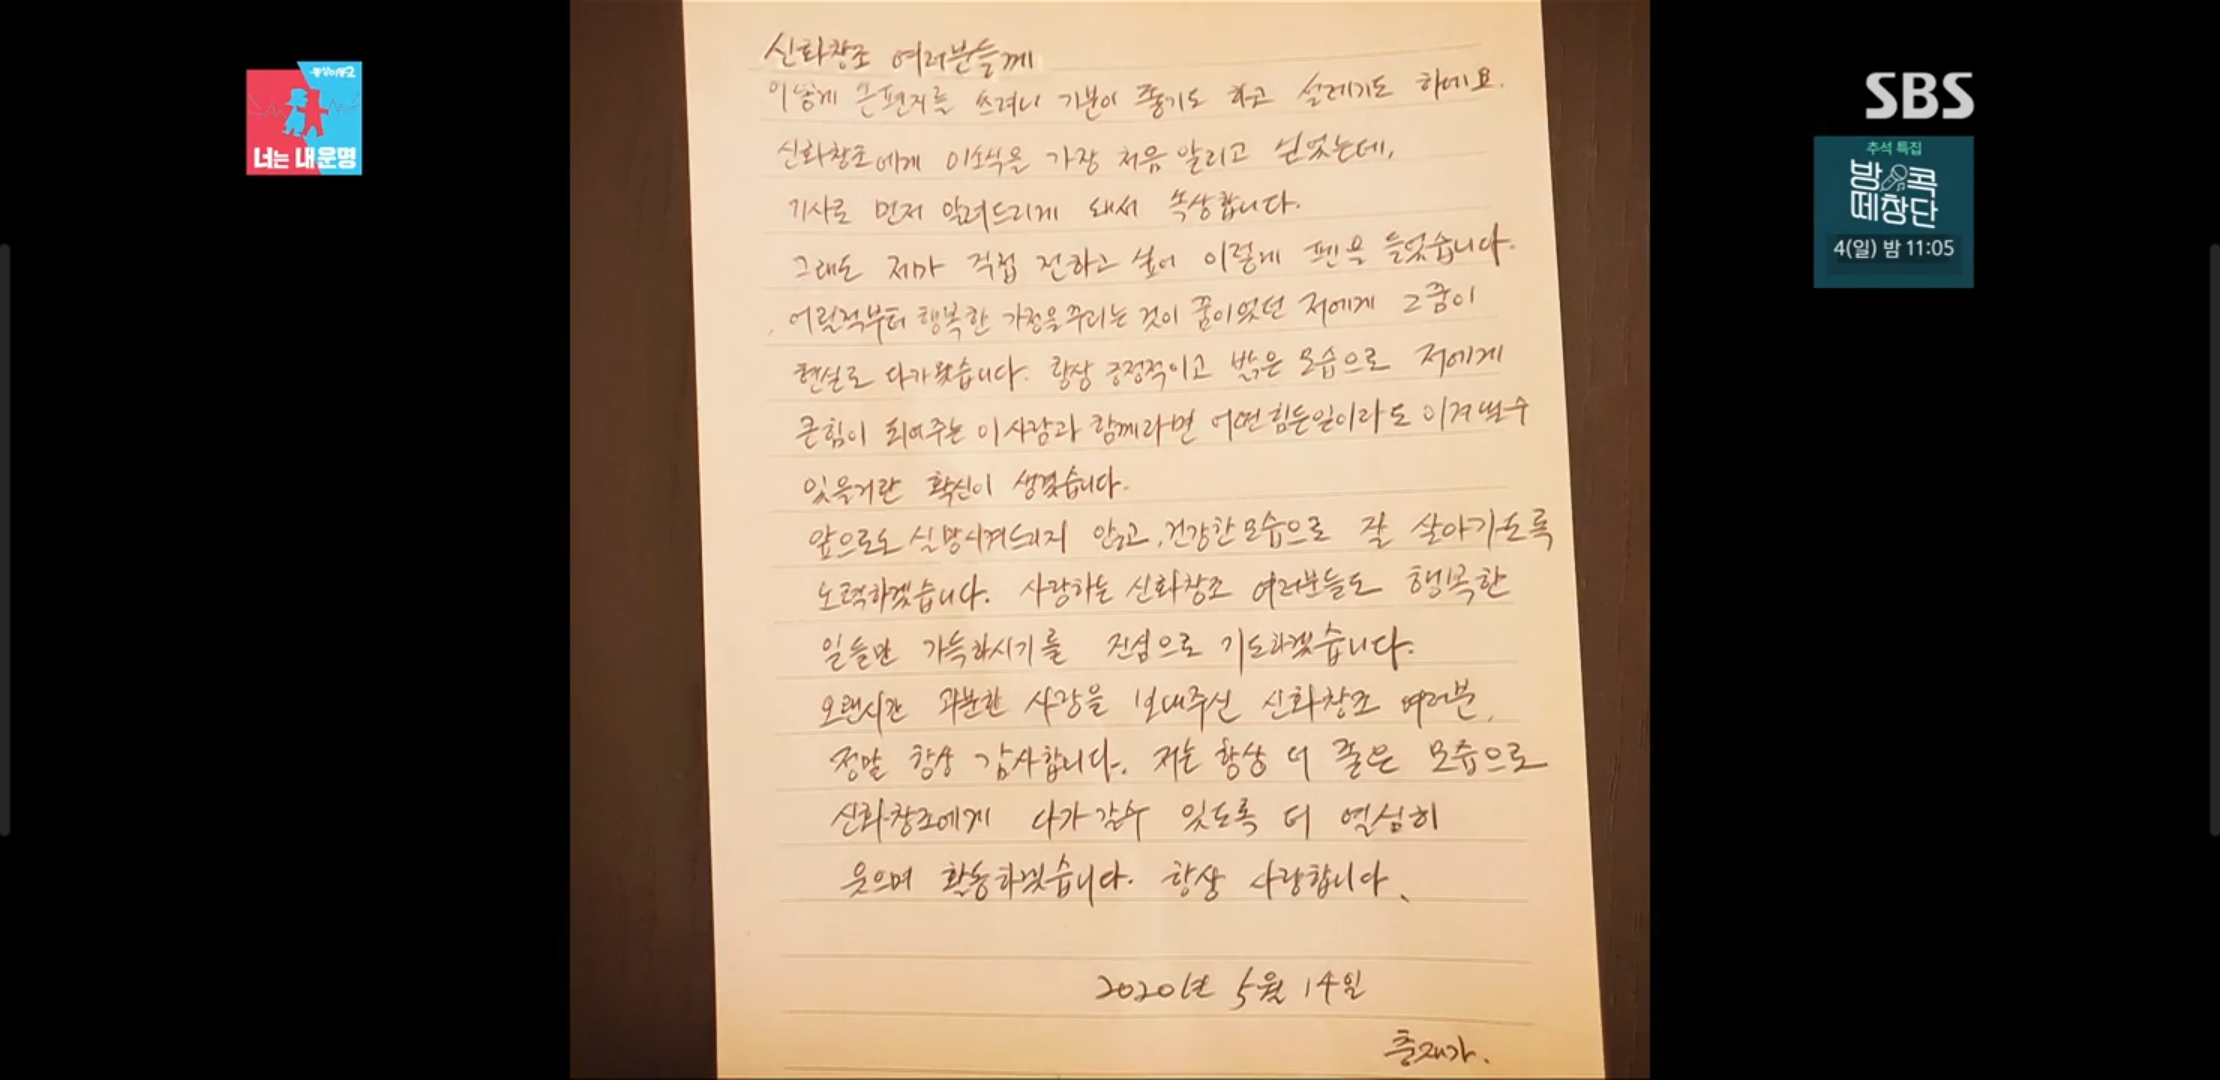 동상이몽2
너는 내 운명
SBS
추석 특집
방콕
떼창단
4(일) 밤 11:05
신화창조 여러분들께
이렇게 손편지를 쓰려니 기분이 좋기도 하고 설레기도 하네요.
신화창조에게 이소식을 가장 처음 알리고 싶었는데,
기사로 먼저 알려드리게 돼서 속상합니다.
그래도 제가 직접 전하고 싶어 이렇게 펜을 들었습니다.
어릴적부터 행복한 가정을 꾸리는 것이 꿈이었던 저에게 그 꿈이
현실로 다가왔습니다. 항상 긍정적이고 밝은 모습으로 저에게
큰힘이 되어주는 이사람과 함께라면 어떤 힘든일이라도 이겨낼수
있을거란 확신이 생겼습니다.
앞으로도 실망시켜드리지 않고, 건강한 모습으로 잘 살아가도록
노력하겠습니다. 사랑하는 신화창조 여러분들도 행복한
일들만 가득하시기를 진심으로 기도하겠습니다.
오랜시간 과분한 사랑을 보내주신 신화창조 여러분,
정말 항상 감사합니다. 저는 항상 더 좋은 모습으로
신화창조에게 다가갈수 있도록 더 열심히
웃으며 활동하겠습니다. 항상 사랑합니다.
2020년 5월 14일
충재가.